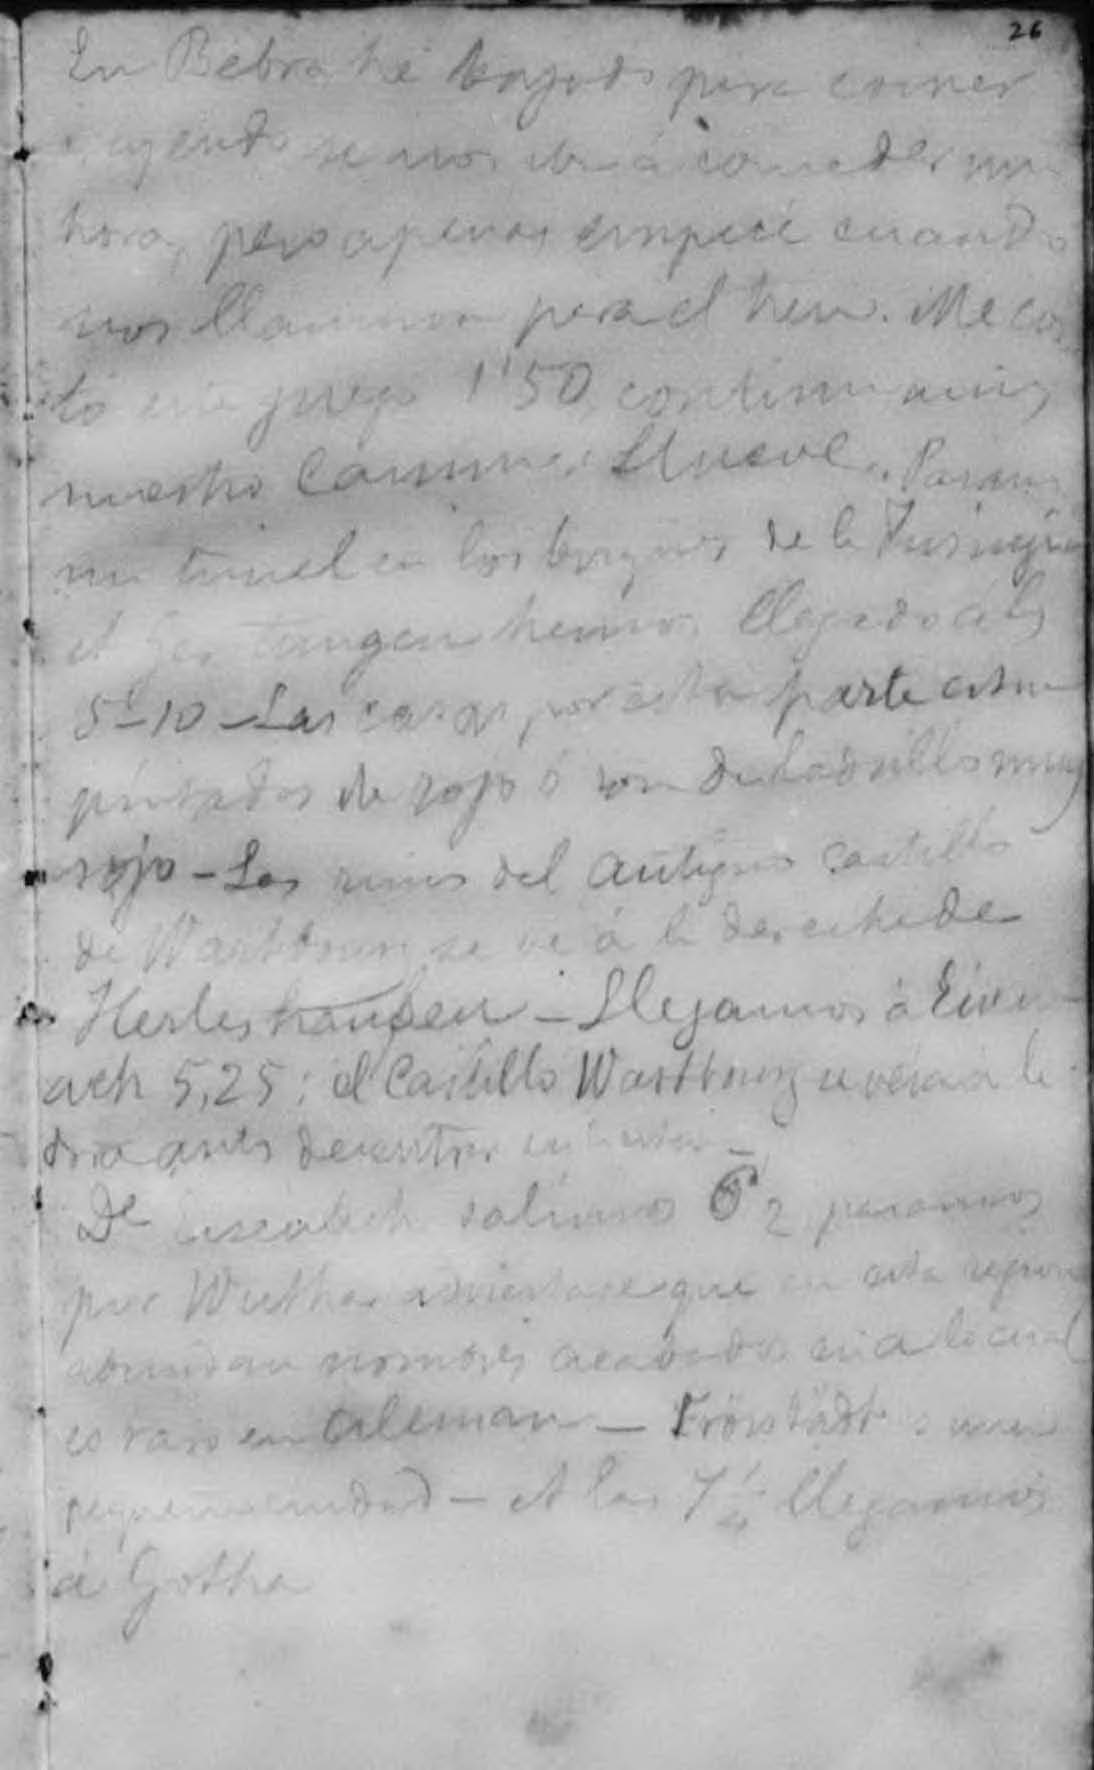 26
En Bebra hé bajado para comer
creyendo se nos iba á conceder una
hora, pero apenas empecé cuando
nos llamaron para el tren. Me cos
tó este juego 1'50, continuamos
nuestro camino. Llueve. Pasamos
un tunel en los bosques de la Turingia
A Gerstungen hemos llegado á las
5-10 - Las casas por esta parte estan
pintadas de rojo ó son de ladrillo muy
rojo - Las ruinas del antiguo castillo
de Wartbourg se vé á la derecha de
Herleshausen - Llegamos á Eisen-
ach 5,25: el Castillo Wartbourg se vé á la
dra antes de entrar en
De Eiseneach salimos 6 2 pasamos
por Wutha adviertase que en esta region
abundan nombres acabados en a lo cual
es raro en aleman - Fröttstädt: una
pequeña ciudad - A las 7 1/4 llegamos
á Gotha